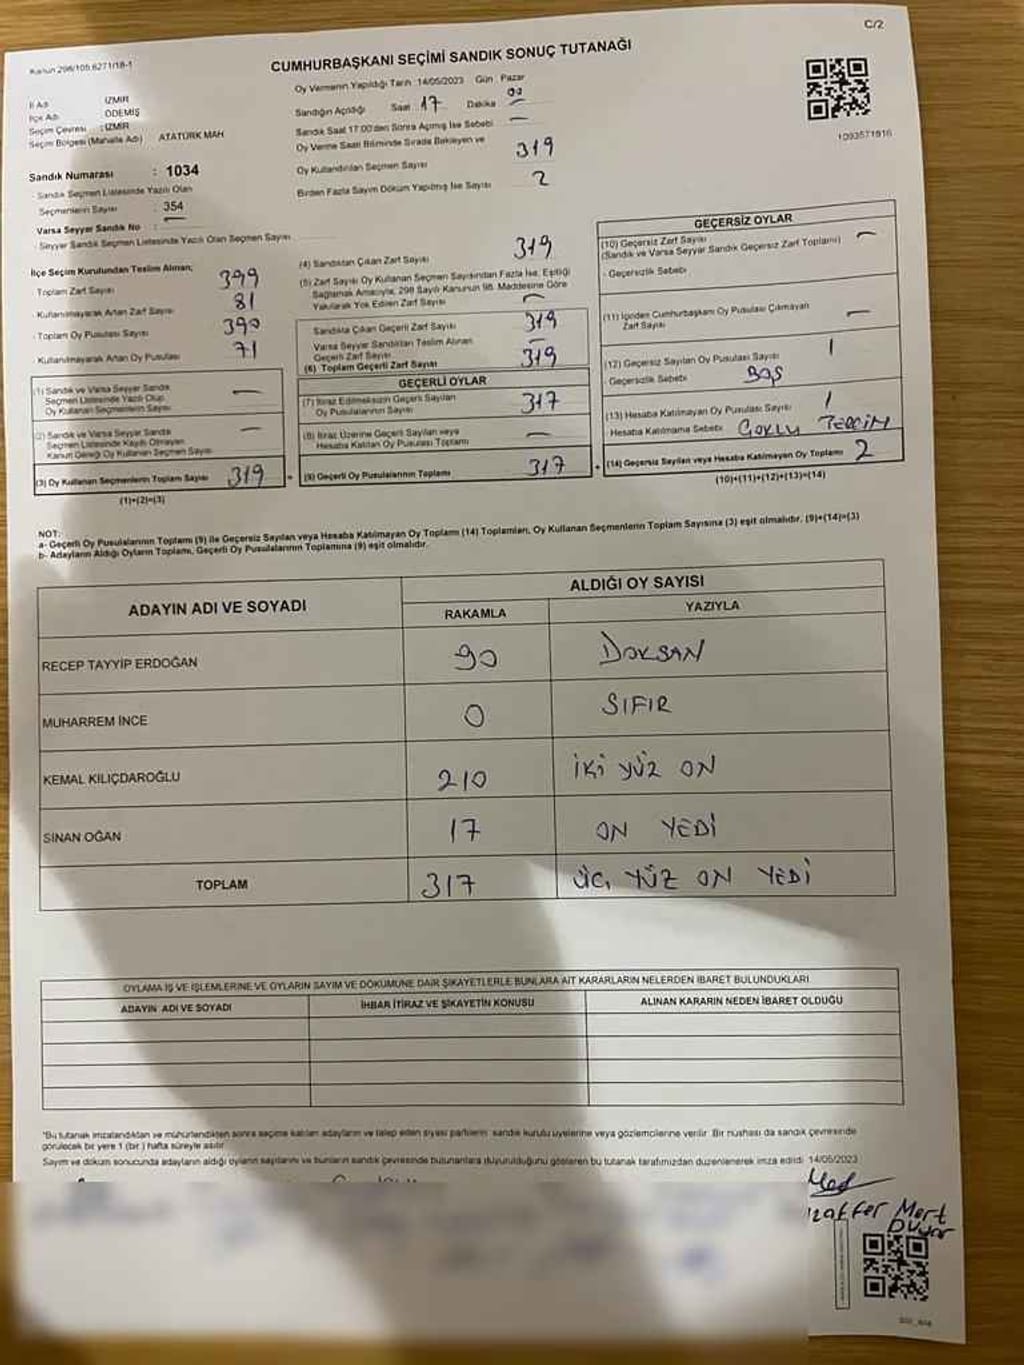 C/2
Kanun 298/105,6271/18-1
CUMHURBAŞKANI SEÇİMİ SANDIK SONUÇ TUTANAĞI
İl Adı : İZMİR
İlçe Adı : ÖDEMİŞ
Seçim Çevresi : İZMİR
Seçim Bölgesi (Mahalle Adı) ATATÜRK MAH
Sandık Numarası : 1034
- Sandık Seçmen Listesinde Yazılı Olan
Seçmenlerin Sayısı : 354
Varsa Seyyar Sandık No : —
- Seyyar Sandık Seçmen Listesinde Yazılı Olan Seçmen Sayısı
Oy Vermenin Yapıldığı Tarih : 14/05/2023 Gün : Pazar
Sandığın Açıldığı Saat 17 Dakika 00
Sandık Saat 17:00'den Sonra Açılmış İse Sebebi —
Oy Verme Saati Bitiminde Sırada Bekleyen ve
Oy Kullandırılan Seçmen Sayısı 319
Birden Fazla Sayım Döküm Yapılmış İse Sayısı 2
1093571916
İlçe Seçim Kurulundan Teslim Alınan;
Toplam Zarf Sayısı 399
- Kullanılmayarak Artan Zarf Sayısı 81
Toplam Oy Pusulası Sayısı 390
- Kullanılmayarak Artan Oy Pusulası 71
(1) Sandık ve Varsa Seyyar Sandık
Seçmen Listesinde Yazılı Olup
Oy Kullanan Seçmenlerin Sayısı —
(2) Sandık ve Varsa Seyyar Sandık
Seçmen Listesinde Kayıtlı Olmayan
Kanun Gereği Oy Kullanan Seçmen Sayısı —
(3) Oy Kullanan Seçmenlerin Toplam Sayısı 319
(1)+(2)=(3)
(4) Sandıktan Çıkan Zarf Sayısı 319
(5) Zarf Sayısı Oy Kullanan Seçmen Sayısından Fazla İse, Eşitliği
Sağlamak Amacıyla, 298 Sayılı Kanunun 98. Maddesine Göre
Yakılarak Yok Edilen Zarf Sayısı —
Sandıkta Çıkan Geçerli Zarf Sayısı 319
Varsa Seyyar Sandıktan Teslim Alınan
Geçerli Zarf Sayısı —
(6) Toplam Geçerli Zarf Sayısı 319
GEÇERLİ OYLAR
(7) İtiraz Edilmeksizin Geçerli Sayılan
Oy Pusulalarının Sayısı 317
(8) İtiraz Üzerine Geçerli Sayılan veya
Hesaba Katılan Oy Pusulası Toplamı —
(9) Geçerli Oy Pusulalarının Toplamı 317
GEÇERSİZ OYLAR
(10) Geçersiz Zarf Sayısı —
(Sandık ve Varsa Seyyar Sandık Geçersiz Zarf Toplamı)
- Geçersizlik Sebebi
(11) İçinden Cumhurbaşkanı Oy Pusulası Çıkmayan
Zarf Sayısı —
(12) Geçersiz Sayılan Oy Pusulası Sayısı 1
- Geçersizlik Sebebi BOŞ
(13) Hesaba Katılmayan Oy Pusulası Sayısı 1
- Hesaba Katılmama Sebebi ÇOKLU TERCİH
(14) Geçersiz Sayılan veya Hesaba Katılmayan Oy Toplamı 2
(10)+(11)+(12)+(13)=(14)
NOT:
a- Geçerli Oy Pusulalarının Toplamı (9) ile Geçersiz Sayılan veya Hesaba Katılmayan Oy Toplamı (14) Toplamları, Oy Kullanan Seçmenlerin Toplam Sayısına (3) eşit olmalıdır. (9)+(14)=(3)
b- Adayların Aldığı Oyların Toplamı, Geçerli Oy Pusulalarının Toplamına (9) eşit olmalıdır.
ADAYIN ADI VE SOYADI
ALDIĞI OY SAYISI
RAKAMLA YAZIYLA
RECEP TAYYİP ERDOĞAN 90 DOKSAN
MUHARREM İNCE 0 SIFIR
KEMAL KILIÇDAROĞLU 210 İKİ YÜZ ON
SİNAN OĞAN 17 ON YEDİ
TOPLAM 317 ÜÇ YÜZ ON YEDİ
OYLAMA İŞ VE İŞLEMLERİNE VE OYLARIN SAYIM VE DÖKÜMÜNE DAİR ŞİKAYETLERLE BUNLARA AİT KARARLARIN NELERDEN İBARET BULUNDUKLARI
ADAYIN ADI VE SOYADI İHBAR İTİRAZ VE ŞİKAYETİN KONUSU ALINAN KARARIN NEDEN İBARET OLDUĞU
*Bu tutanak imzalandıktan ve mühürlendikten sonra seçime katılan adayların ve talep eden siyasi partilerin sandık kurulu üyelerine veya gözlemcilerine verilir. Bir nüshası da sandık çevresinde
görülecek bir yere 1 (bir) hafta süreyle asılır.
Sayım ve döküm sonucunda adayların aldığı oyların sayılarını ve bunların sandık çevresinde bulunanlara duyurulduğunu gösteren bu tutanak tarafımızdan düzenlenerek imza edildi. 14/05/2023
zaffer Mert
Duyar